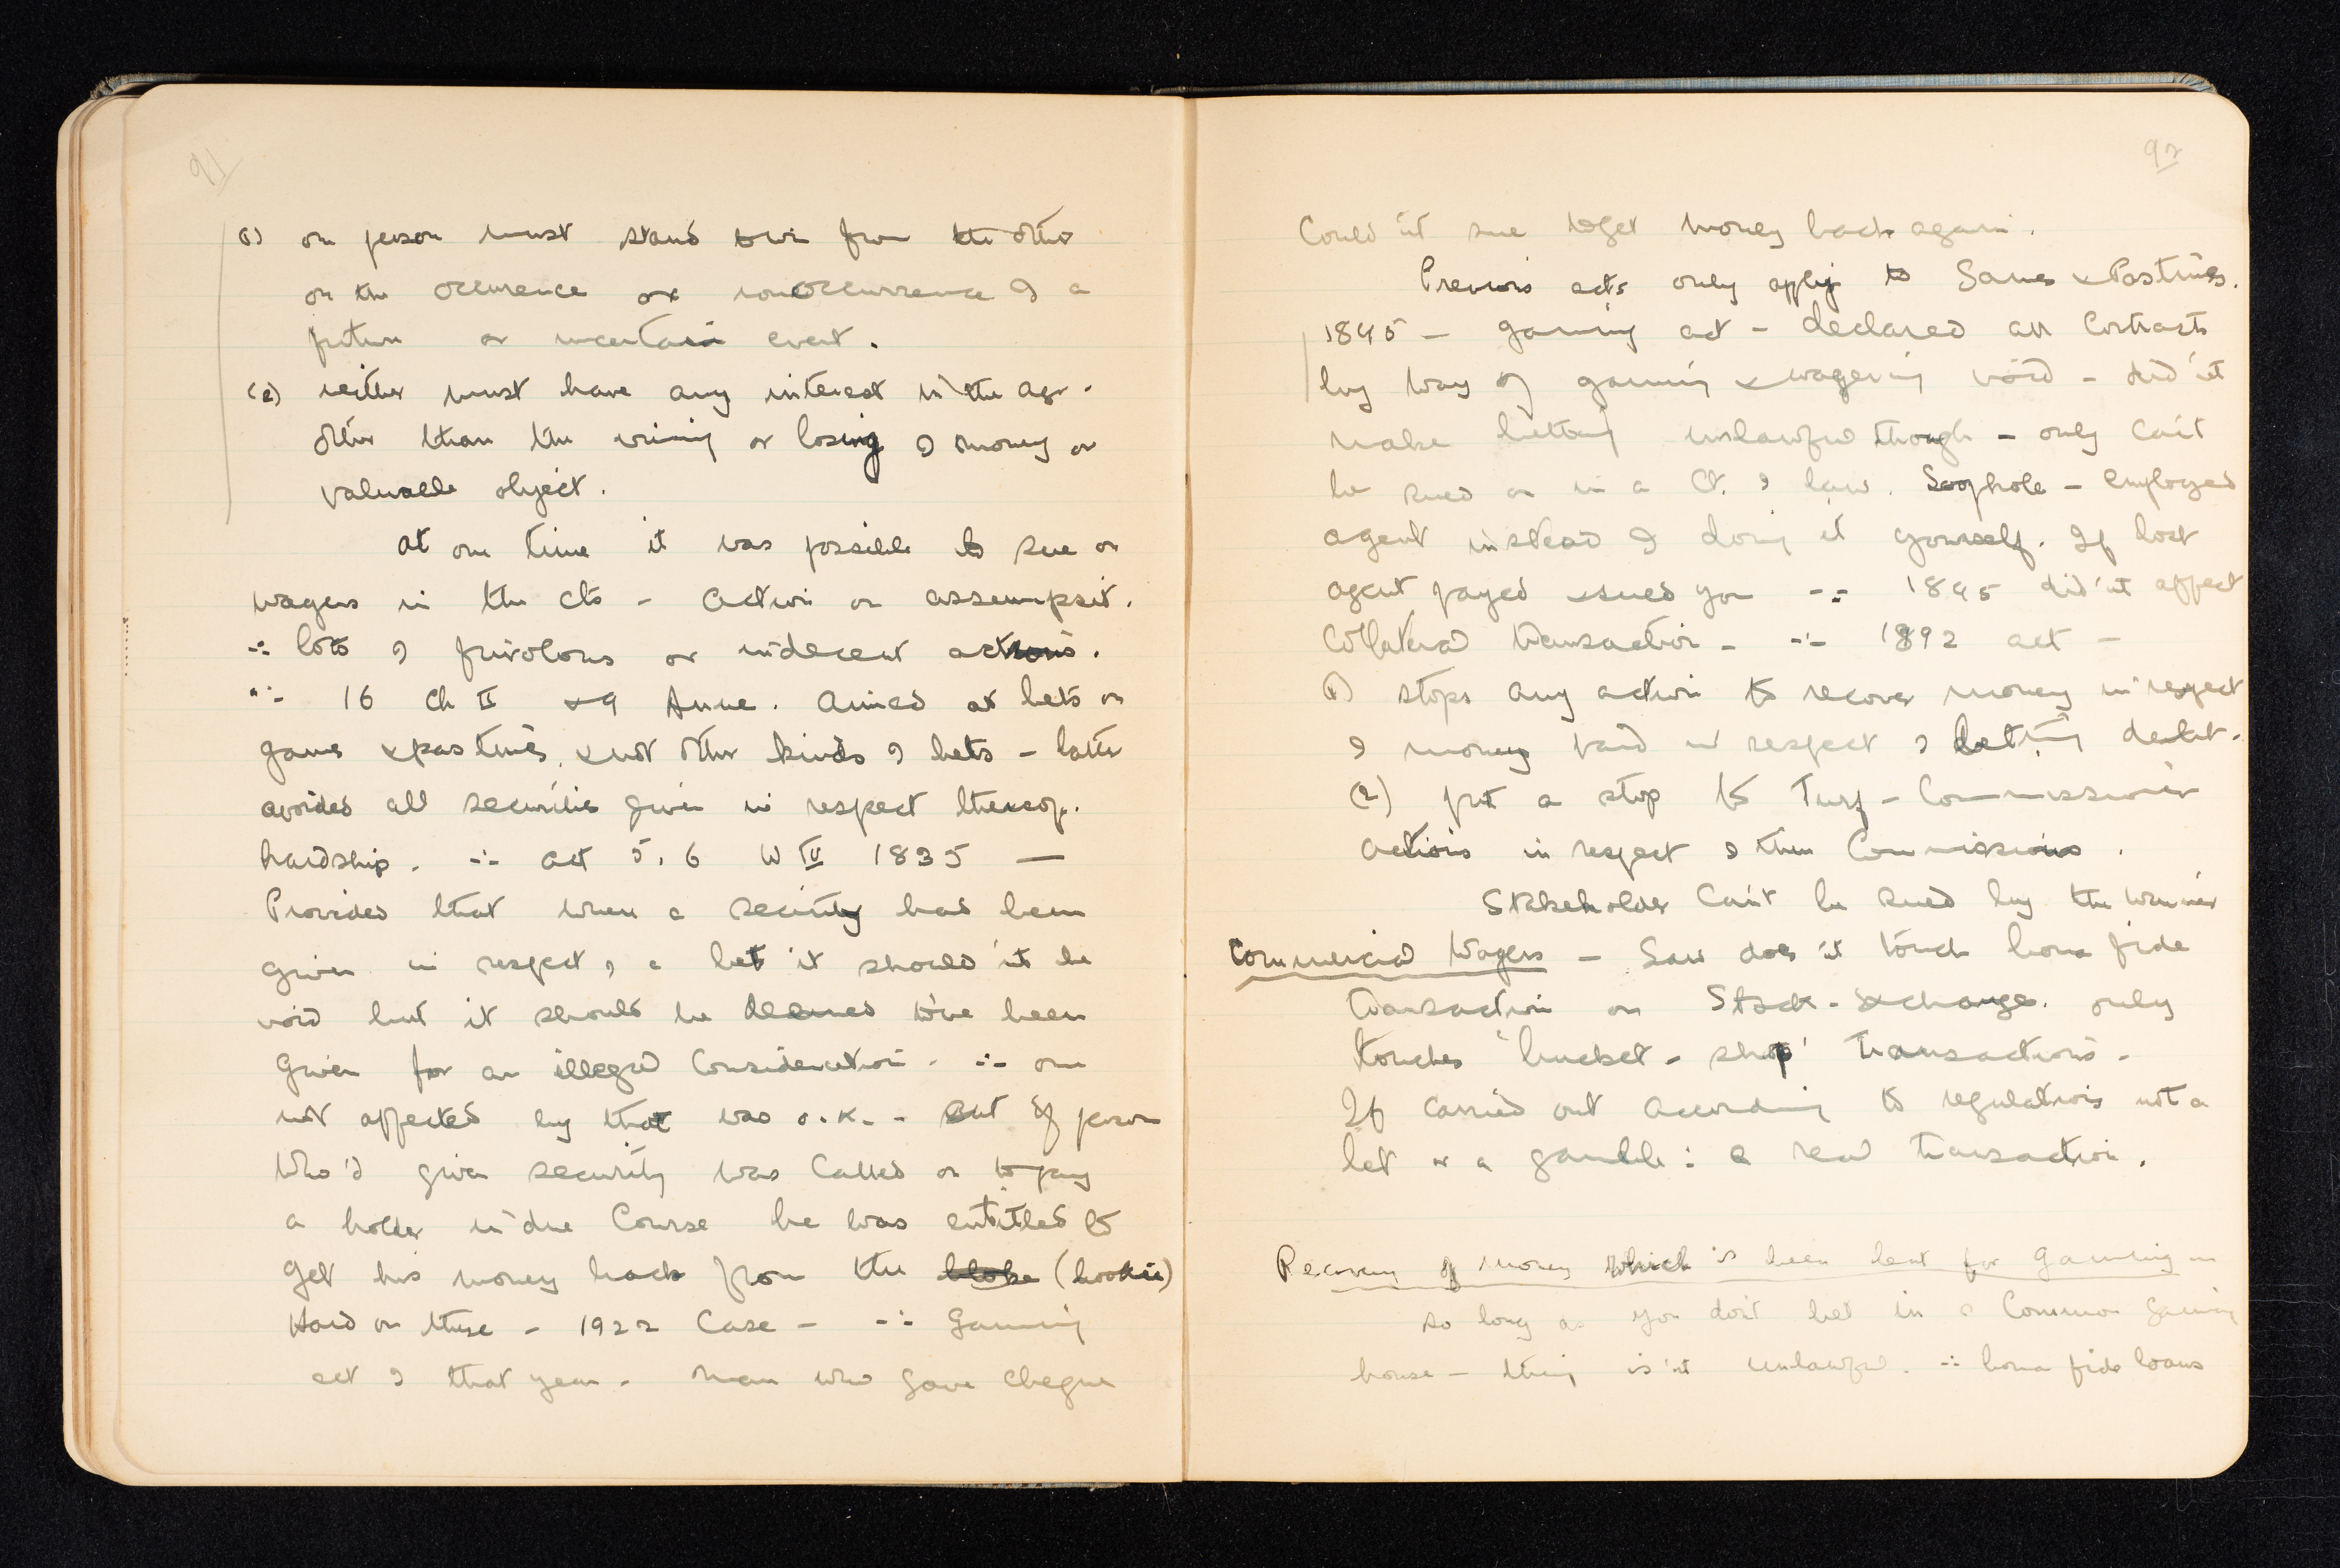 91
(1) one person must stand to win from the other
on the occurrence or nonoccurrence of a
future or uncertain event.
(2) neither must have any interest in the agr.
other than the winning or losing of money or
valuable object.
At one time it was possible to sue on
wagers in the cts - action on assumpsit.
∴ lots of frivolous or indecent actions.
∴ 16 Ch II & 9 Anne. Aimed at bets on
games & pastimes, & not other kinds of bets - latter
avoided all securities given in respect thereof.
hardship. ∴ act 5, 6 W IV 1835 —
Provided that when a security had been
given in respect of a bet it should'nt be
void but it should be deemed to've been
given for an illegal consideration. ∴ one
not affected by that was o.K. - But if person
who'd given security was called on to pay
a holder in due course he was entitled to
get his money back from the bloke (bookie)
Hard on these - 1922 Case - ∴ Gaming
act of that year. Man who gave cheque
92
Could'nt sue to get money back again.
Previous acts only apply to Games & Pastimes.
1845 - gaming act - declared all contracts
by way of gaming & wagering void - did'nt
make betting unlawful though - only can't
be sued on in a Ct. of law. Loophole - employed
agent instead of doing it yourself. If lost
agent payed & sued you ∴ 1845 did'nt affect
collateral transaction - ∴ 1892 act -
1) stops any action to recover money in respect
of money paid in respect of betting debt.
(2) put a stop to Turf-Commissioner
actions in respect of their Commissions.
Stakeholder can't be sued by the winner
Commercial Wagers - Law does'nt touch bona fide
transaction on Stock-Exchange. only
touches 'bucket-shop' transactions -
If carried out according to regulations not a
bet or a gamble: a real transaction.
Recovery of money which is been lent for gaming on
so long as you don't bet in a Common Gaming
house - thing is'nt unlawful. ∴ bona fide loans